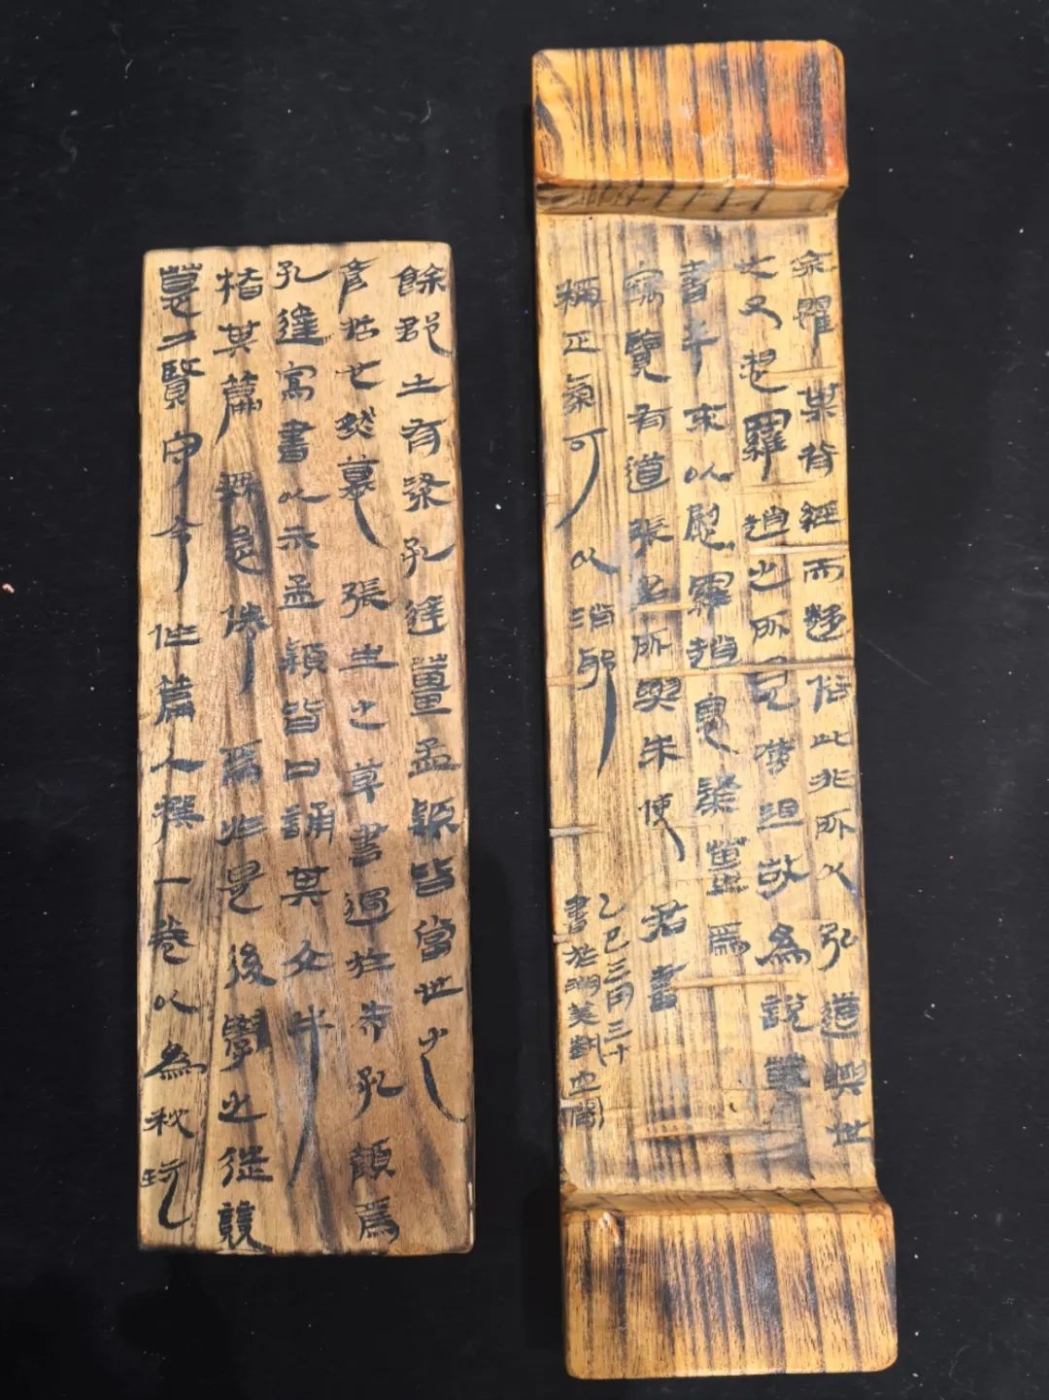 餘郡士有梁孔達薑孟穎皆當世之
彥哲也然慕張生之草書過於希孔顏焉
孔達寫書以示孟穎皆口誦其文手
楷其篇無怠倦焉於是後學之徒競
慕二賢守令作篇人撰一卷以為秘玩
余懼其背經而趨俗此非所以弘道興世
也又想羅趙之所見嗤沮故為說草
書本末以慰羅趙息梁薑焉
竊覽有道張君所與朱使君書
稱正氣可以消邪
乙巳三月三十
書於湖美